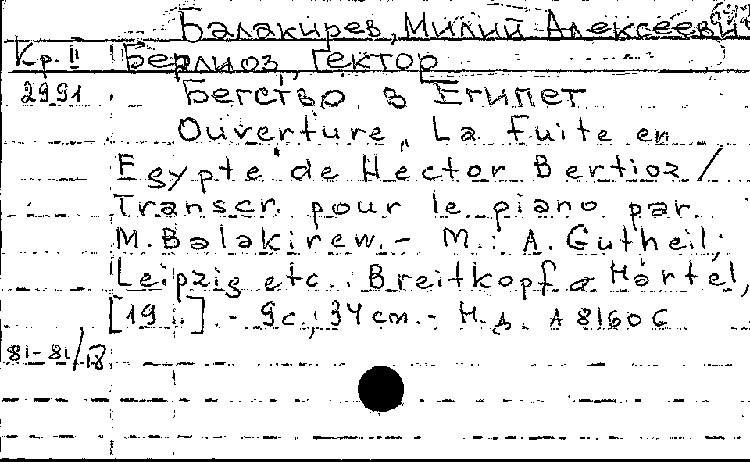 Балакирев, Милий Алексеевич
Кр. II Берлиоз, Гектор
2991 Бегство в Египет
Ouverture „La fuite en
Egypte" de Hector Bertioz /
Transcr. pour le piano par
M. Balakirew. - M.: A. Gutheil;
Leipzig etc.: Breitkopf & Hörtel,
[19 .] - 9с.; 34 см. - Н. д. А 8160 С
81-81/18